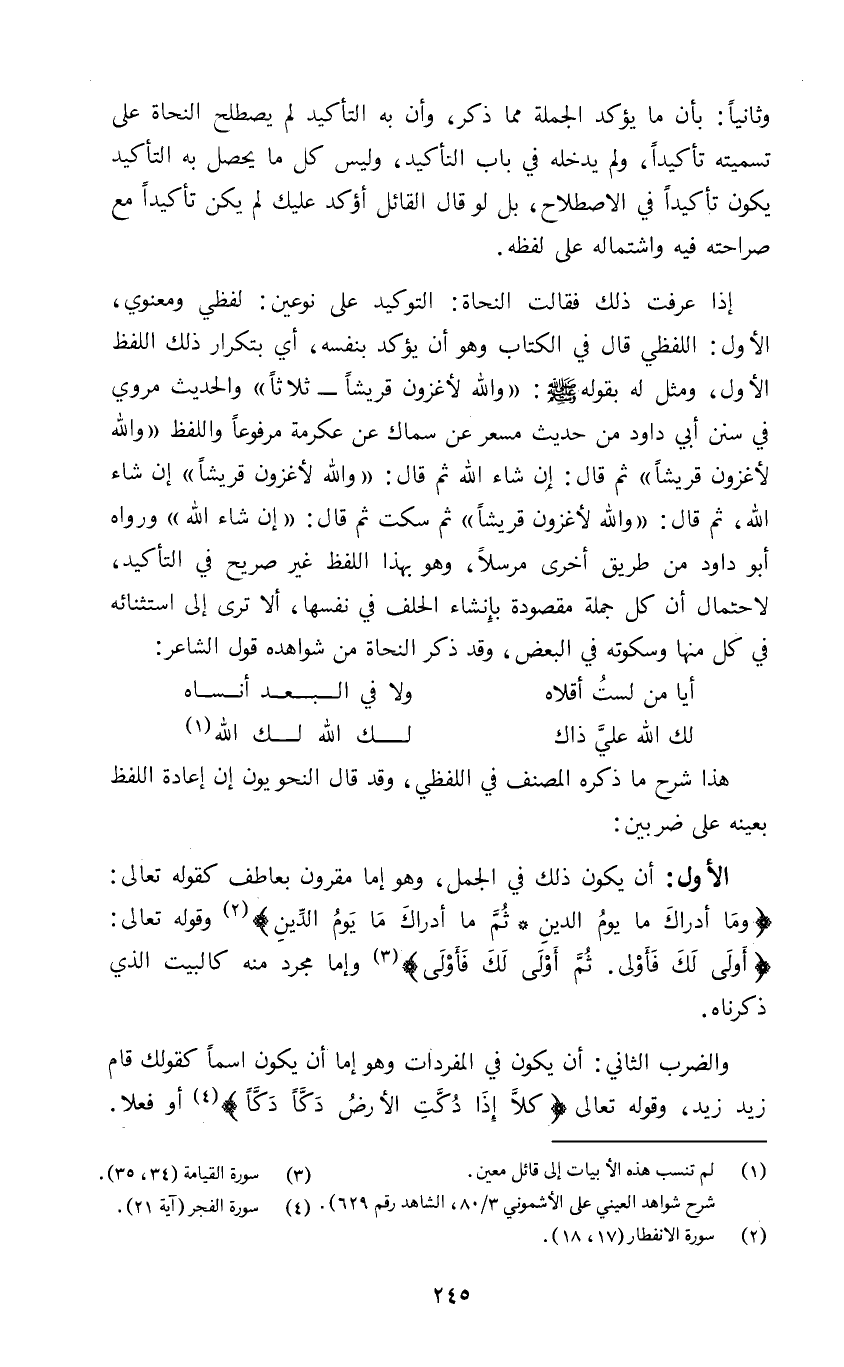 وثانياً: بأن ما يؤكد الجملة مما ذكر، وأن به التأكيد لم يصطلح النحاة على
تسميته تأكيداً، ولم يدخله في باب التأكيد، وليس كل ما يحصل به التأكيد
يكون تأكيداً في الاصطلاح، بل لو قال القائل أؤكد عليك لم يكن تأكيداً مع
صراحته فيه واشتماله على لفظه.
إذا عرفت ذلك فقالت النحاة: التوكيد على نوعين: لفظي ومعنوي،
الأول: اللفظي قال في الكتاب وهو أن يؤكد بنفسه، أي بتكرار ذلك اللفظ
الأول، ومثل له بقوله ﷺ: «والله لأغزون قريشاً ـ ثلاثاً» والحديث مروي
في سنن أبي داود من حديث مسعر عن سماك عن عكرمة مرفوعاً واللفظ «والله
لأغزون قريشاً» ثم قال: إن شاء الله ثم قال: «والله لأغزون قريشاً» إن شاء
الله، ثم قال: «والله لأغزون قريشاً» ثم سكت ثم قال: «إن شاء الله» ورواه
أبو داود من طريق أخرى مرسلاً، وهو بهذا اللفظ غير صريح في التأكيد،
لاحتمال أن كل جملة مقصودة بإنشاء الحلف في نفسها، ألا ترى إلى استثنائه
في كل منها وسكوته في البعض، وقد ذكر النحاة من شواهده قول الشاعر:
أيا من لستُ أقلاه ولا في الـبـعـد أنـسـاه
لك الله عليَّ ذاك لــك الله لــك الله(١)
هذا شرح ما ذكره المصنف في اللفظي، وقد قال النحويون إن إعادة اللفظ
بعينه على ضربين:
الأول: أن يكون ذلك في الجمل، وهو إما مقرون بعاطف كقوله تعالى:
﴿ومَا أدراكَ ما يومُ الدينِ * ثُمَّ ما أدراكَ مَا يَومُ الدِّينِ﴾(٢) وقوله تعالى:
﴿أَولَى لَكَ فَأَوْلى. ثُمَّ أَوْلَى لَكَ فَأَوْلَى﴾(٣) وإما مجرد منه كالبيت الذي
ذكرناه.
والضرب الثاني: أن يكون في المفردات وهو إما أن يكون اسماً كقولك قام
زيد زيد، وقوله تعالى ﴿كلاَّ إِذَا دُكَّتِ الأرضُ دَكَّاً دَكَّاً﴾(٤) أو فعلا.
(١) لم تنسب هذه الأبيات إلى قائل معين.
شرح شواهد العيني على الأشموني ٨٠/٣، الشاهد رقم ٦٢٩).
(٢) سورة الانفطار (١٧، ١٨).
(٣) سورة القيامة (٣٤، ٣٥).
(٤) سورة الفجر (آية ٢١).
٢٤٥